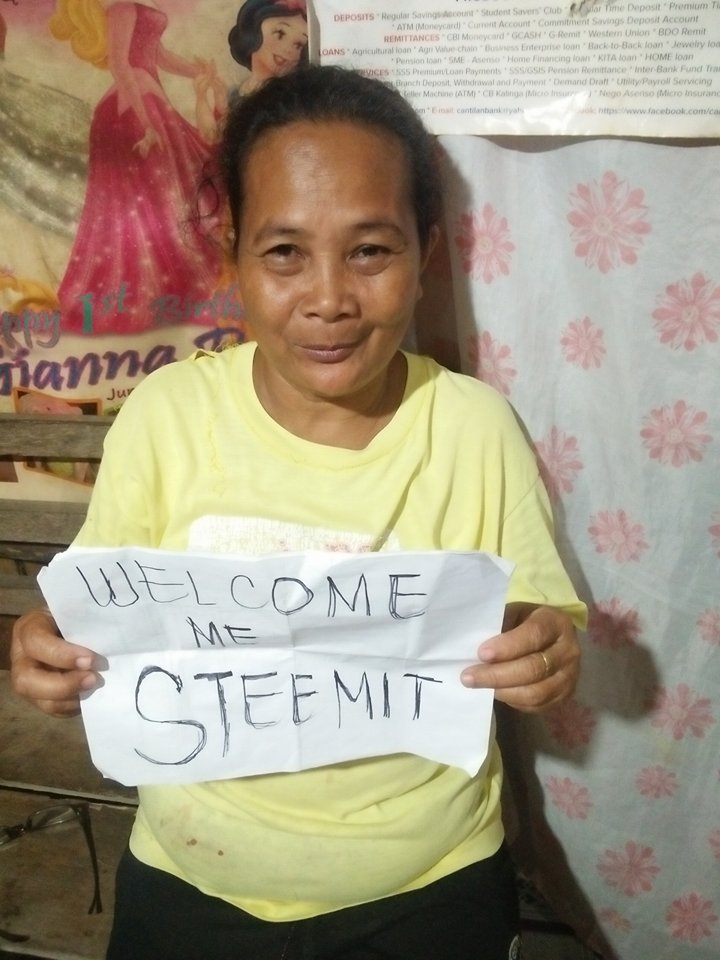 DEPOSITS * Regular Savings Account * Student Savers' Club * Regular Time Deposit * Premium
* ATM (Moneycard) * Current Account * Commitment Savings Deposit Account
REMITTANCES * CBI Moneycard * GCASH * G-Remit * Western Union * BDO Remit
LOANS * Agricultural loan * Agri Value-chain * Business Enterprise loan * Back-to-Back loan * Jewelry
* Pension loan * SME - Asenso * Home Financing loan * KITA loan * HOME loan
SERVICES * SSS Premium/Loan Payments * SSS/GSIS Pension Remittance * Inter-Bank Fund
Branch Deposit, Withdrawal and Payment * Demand Draft * Utility/Payroll Servicing
Teller Machine (ATM) * CB Kalinga (Micro Insurance) * Nego Asenso (Micro
E-mail: https://www.facebook.com/
1st
WELCOME
ME
STEEMIT